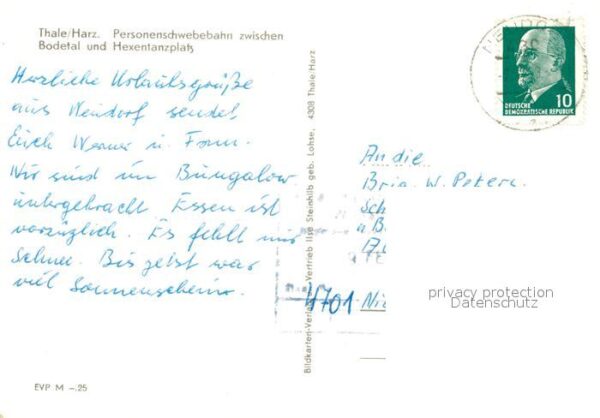 Thale/Harz. Personenschwebebahn zwischen
Bodetal und Hexentanzplatz
Herzliche Urlaubsgrüße
aus Neudorf sendet
Euch Werner u. Fam.
Wir sind im Bungalow
untergebracht. Essen ist
vorzüglich. Es fehlt nur
Schnee. Bis jetzt war
viel Sonnenschein.
EVP M -.25
Bildkarten-Verlag Vertrieb Ilse Steinhilb geb. Lohse, 4308 Thale/Harz
DEUTSCHE
DEMOKRATISCHE REPUBLIK 10
An die
Brig. W. Peters
4701
privacy protection
Datenschutz